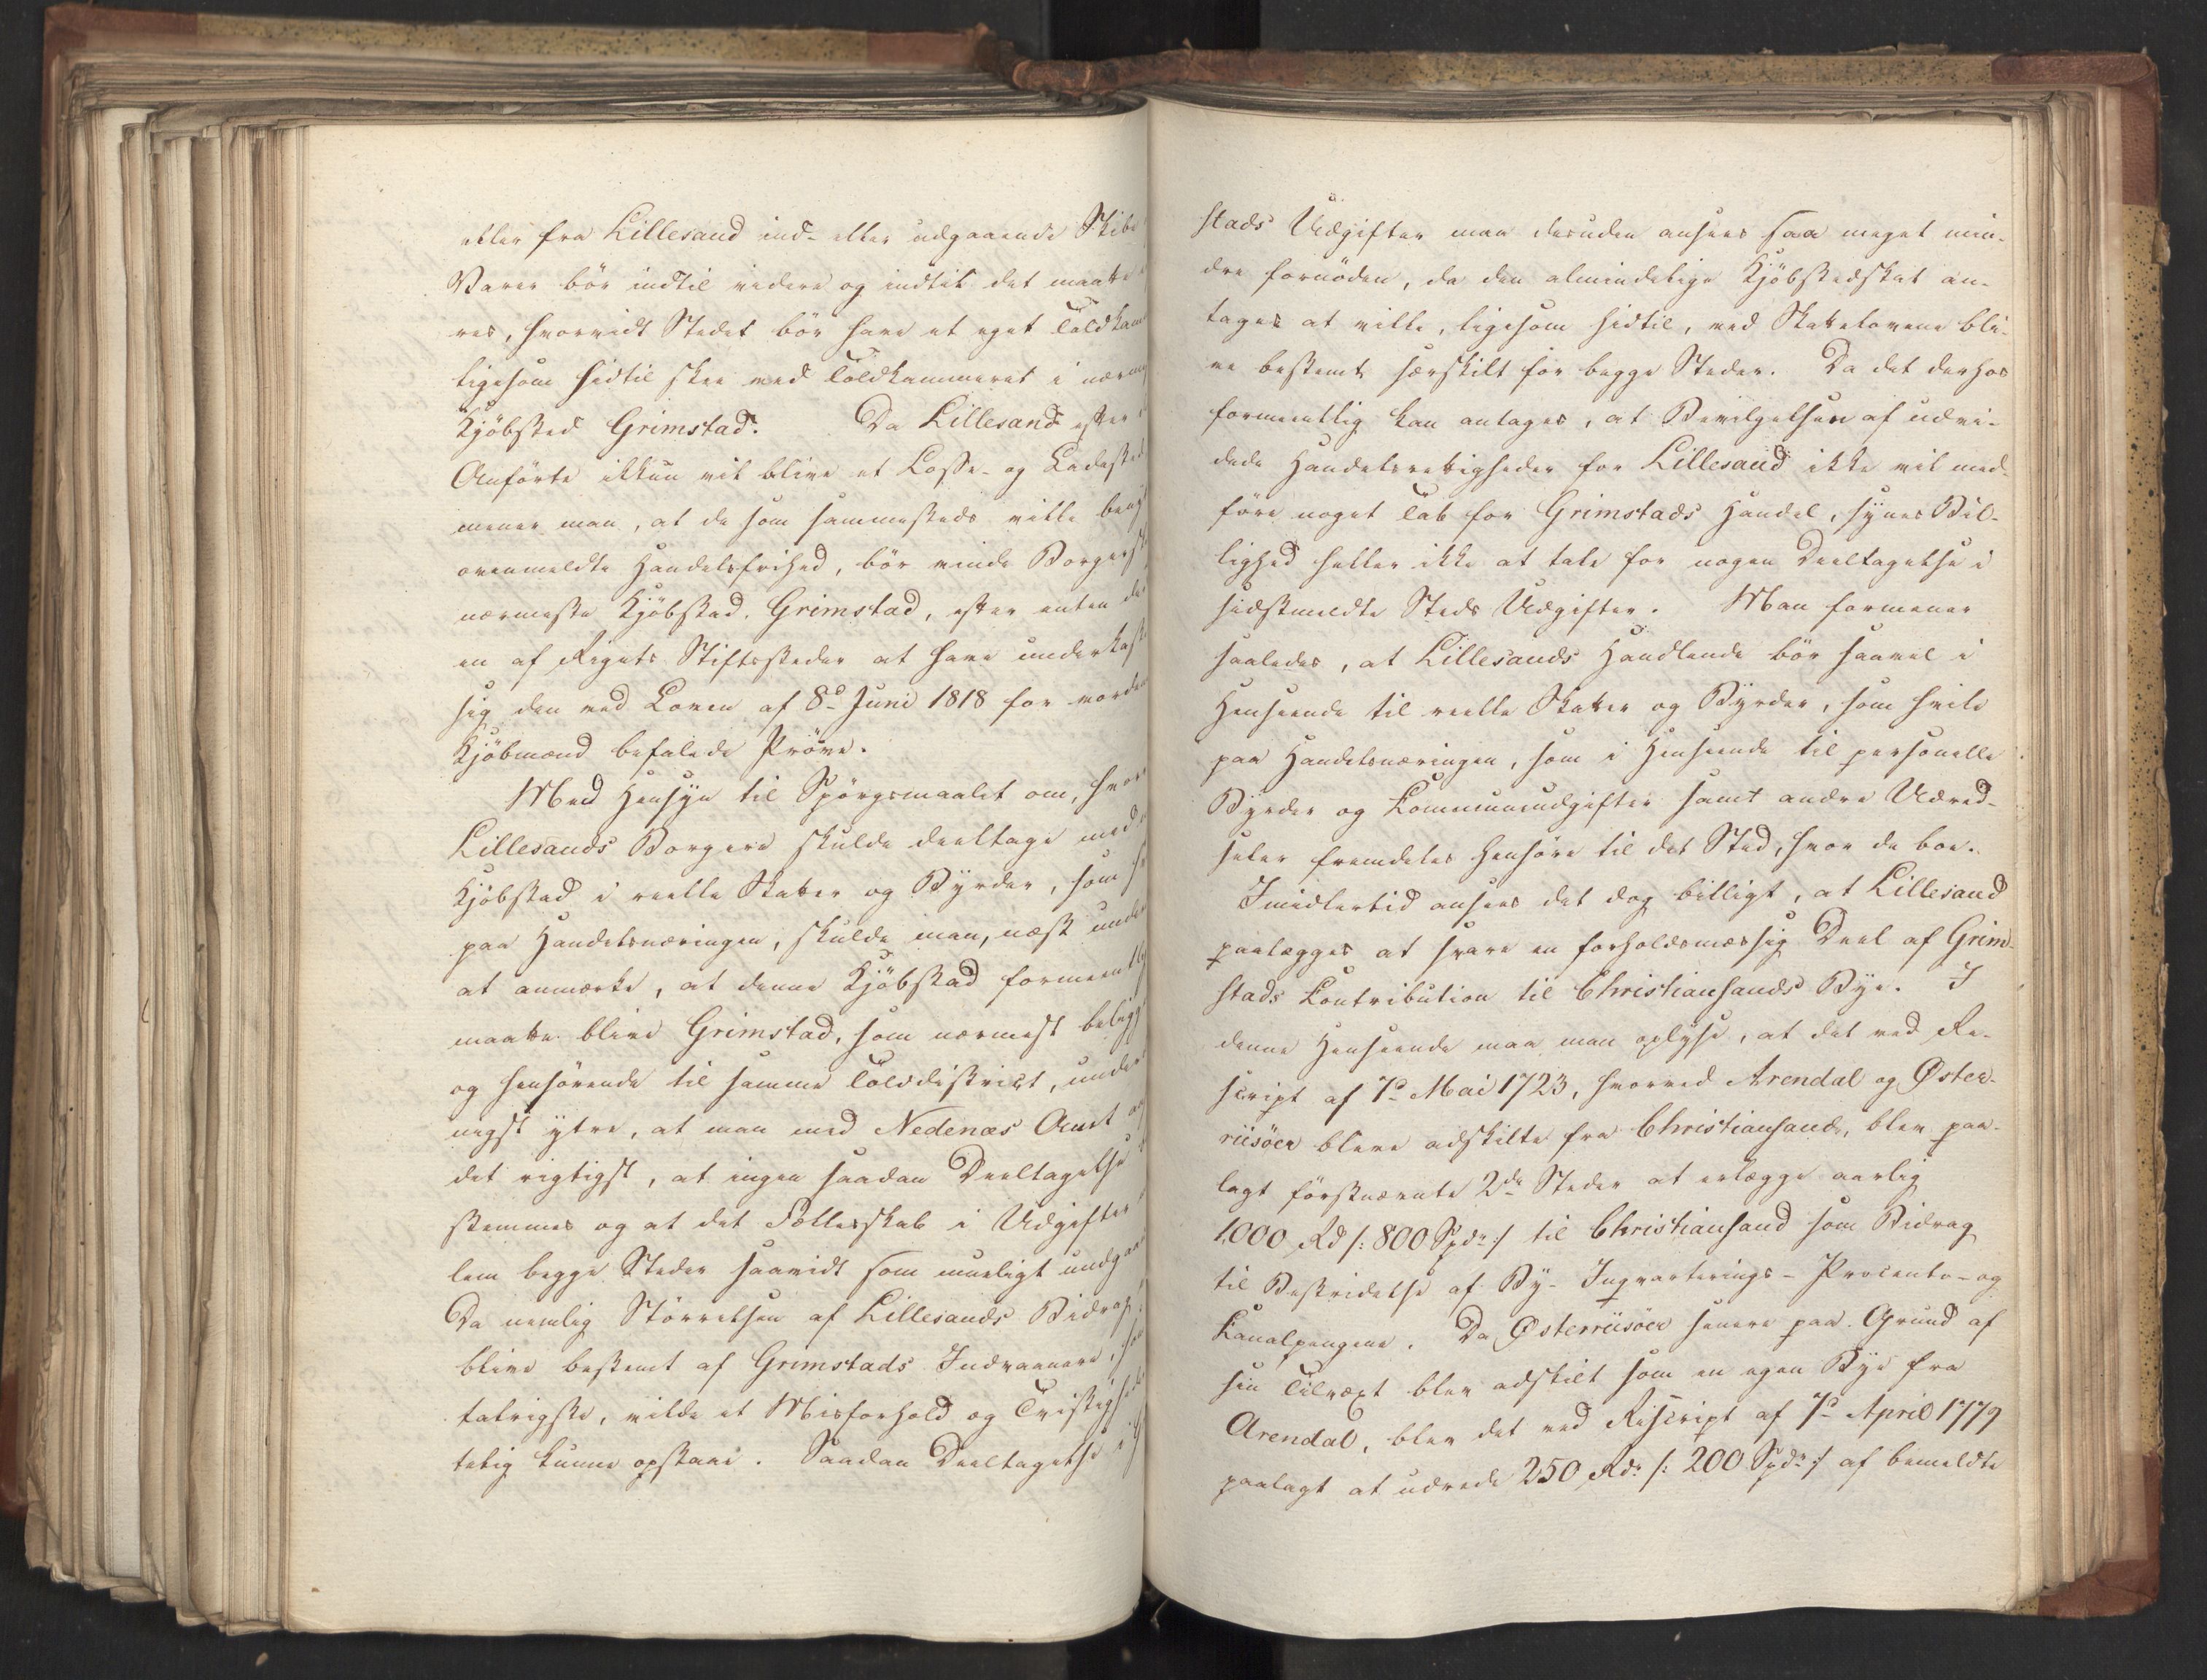 eller fra Lillesand ind- eller udgaaende Skibe
Varer bör indtil videre og indtil det maatte
res, hvorvidt Stedet bör have et eget Toldkam
ligesom hidtil skee ved Toldkammeret i nærme
Kjöbsted Grimstad. Da Lillesand efter
Anförte ikkun vil blive et Losse- og Ladested
mener man, at de som sammesteds ville beny
ovenmeldte Handelsfrihed, bör vinde Borgersk
nærmeste Kjöbstad, Grimstad, efter enten der
en af Rigets Stiftsstæder at have underkast
sig den ved Loven af 8de Juni 1818 for vorden
Kjöbmænd befalede Pröve.
Med Hensyn til Spörgsmaalet om, hvor
Lillesands Borgere skulde deeltage med
Kjöbstad i reelle Skatter og Byrder, som h
paa Handelsnæringen, skulde man, næst under
at anmærke, at denne Kjöbstad formeentlig
maatte blive Grimstad, som nærmest belig
og henhörende til samme Tolddistrict, under
nigst ytre, at man med Nedenæs Amt
det rigtigst, at ingen saadan Deeltagelse
stemmes og at det Fællesskab i Udgifter
lem begge Steder saavidt som mueligt undgaa
Da nemlig Störrelsen af Lillesands Bidrag
blive bestemt af Grimstads Indvaanere, som
talrigste, vilde et Misforhold og Tvistigheder
telig kunne opstaae. Saadan Deeltagelse i G
stads Udgifter maa desuden ansees saa meget min-
dre fornöden, da den almindelige Kjöbstedskat an-
tages at ville, ligesom hidtil, ved Skattelovene bli-
ve bestemt særskilt for begge Steder. Da det derhos
formeentlig kan antages, at Bevilgelsen af udvi-
dede Handelsrettigheder for Lillesand ikke vil med-
före noget Tab for Grimstads Handel, synes Bil-
lighed heller ikke at tale for nogen Deeltagelse i
sidstmeldte Steds Udgifter. Man formener
saaledes, at Lillesands Handlende bör saavel i
Henseende til reelle Skatter og Byrder, som hvile
paa Handelsnæringen, som i Henseende til personelle
Byrder og Kommuneudgifter samt andre Udred-
seler fremdeles henhöre til det Sted, hvor de boe.
Imidlertid ansees det dog billigt, at Lillesand
paalægges at svare en forholdsmæssig Deel af Grim-
stads Contribution til Christiansands Bye. I
denne Henseende maa man oplyse, at det ved Re-
script af 7de Mai 1723, hvorved Arendal og Øster-
riisöer bleve adskilte fra Christiansand, blev paa-
lagt förstnævnte 2de Steder at erlægge aarlig
1000 Rd /: 800 Spdr :/ til Christiansand som Bidrag
til Bestridelse af By- Inqvarterings- Procento- og
Kanalpengene. Da Østerriisöer senere paa Grund af
sin Tilvæxt blev adskilt som en egen Bye fra
Arendal, blev det ved Rescript af 7de April 1779
paalagt at udrede 250 Rdr /: 200 Spdr :/ af bemeldte